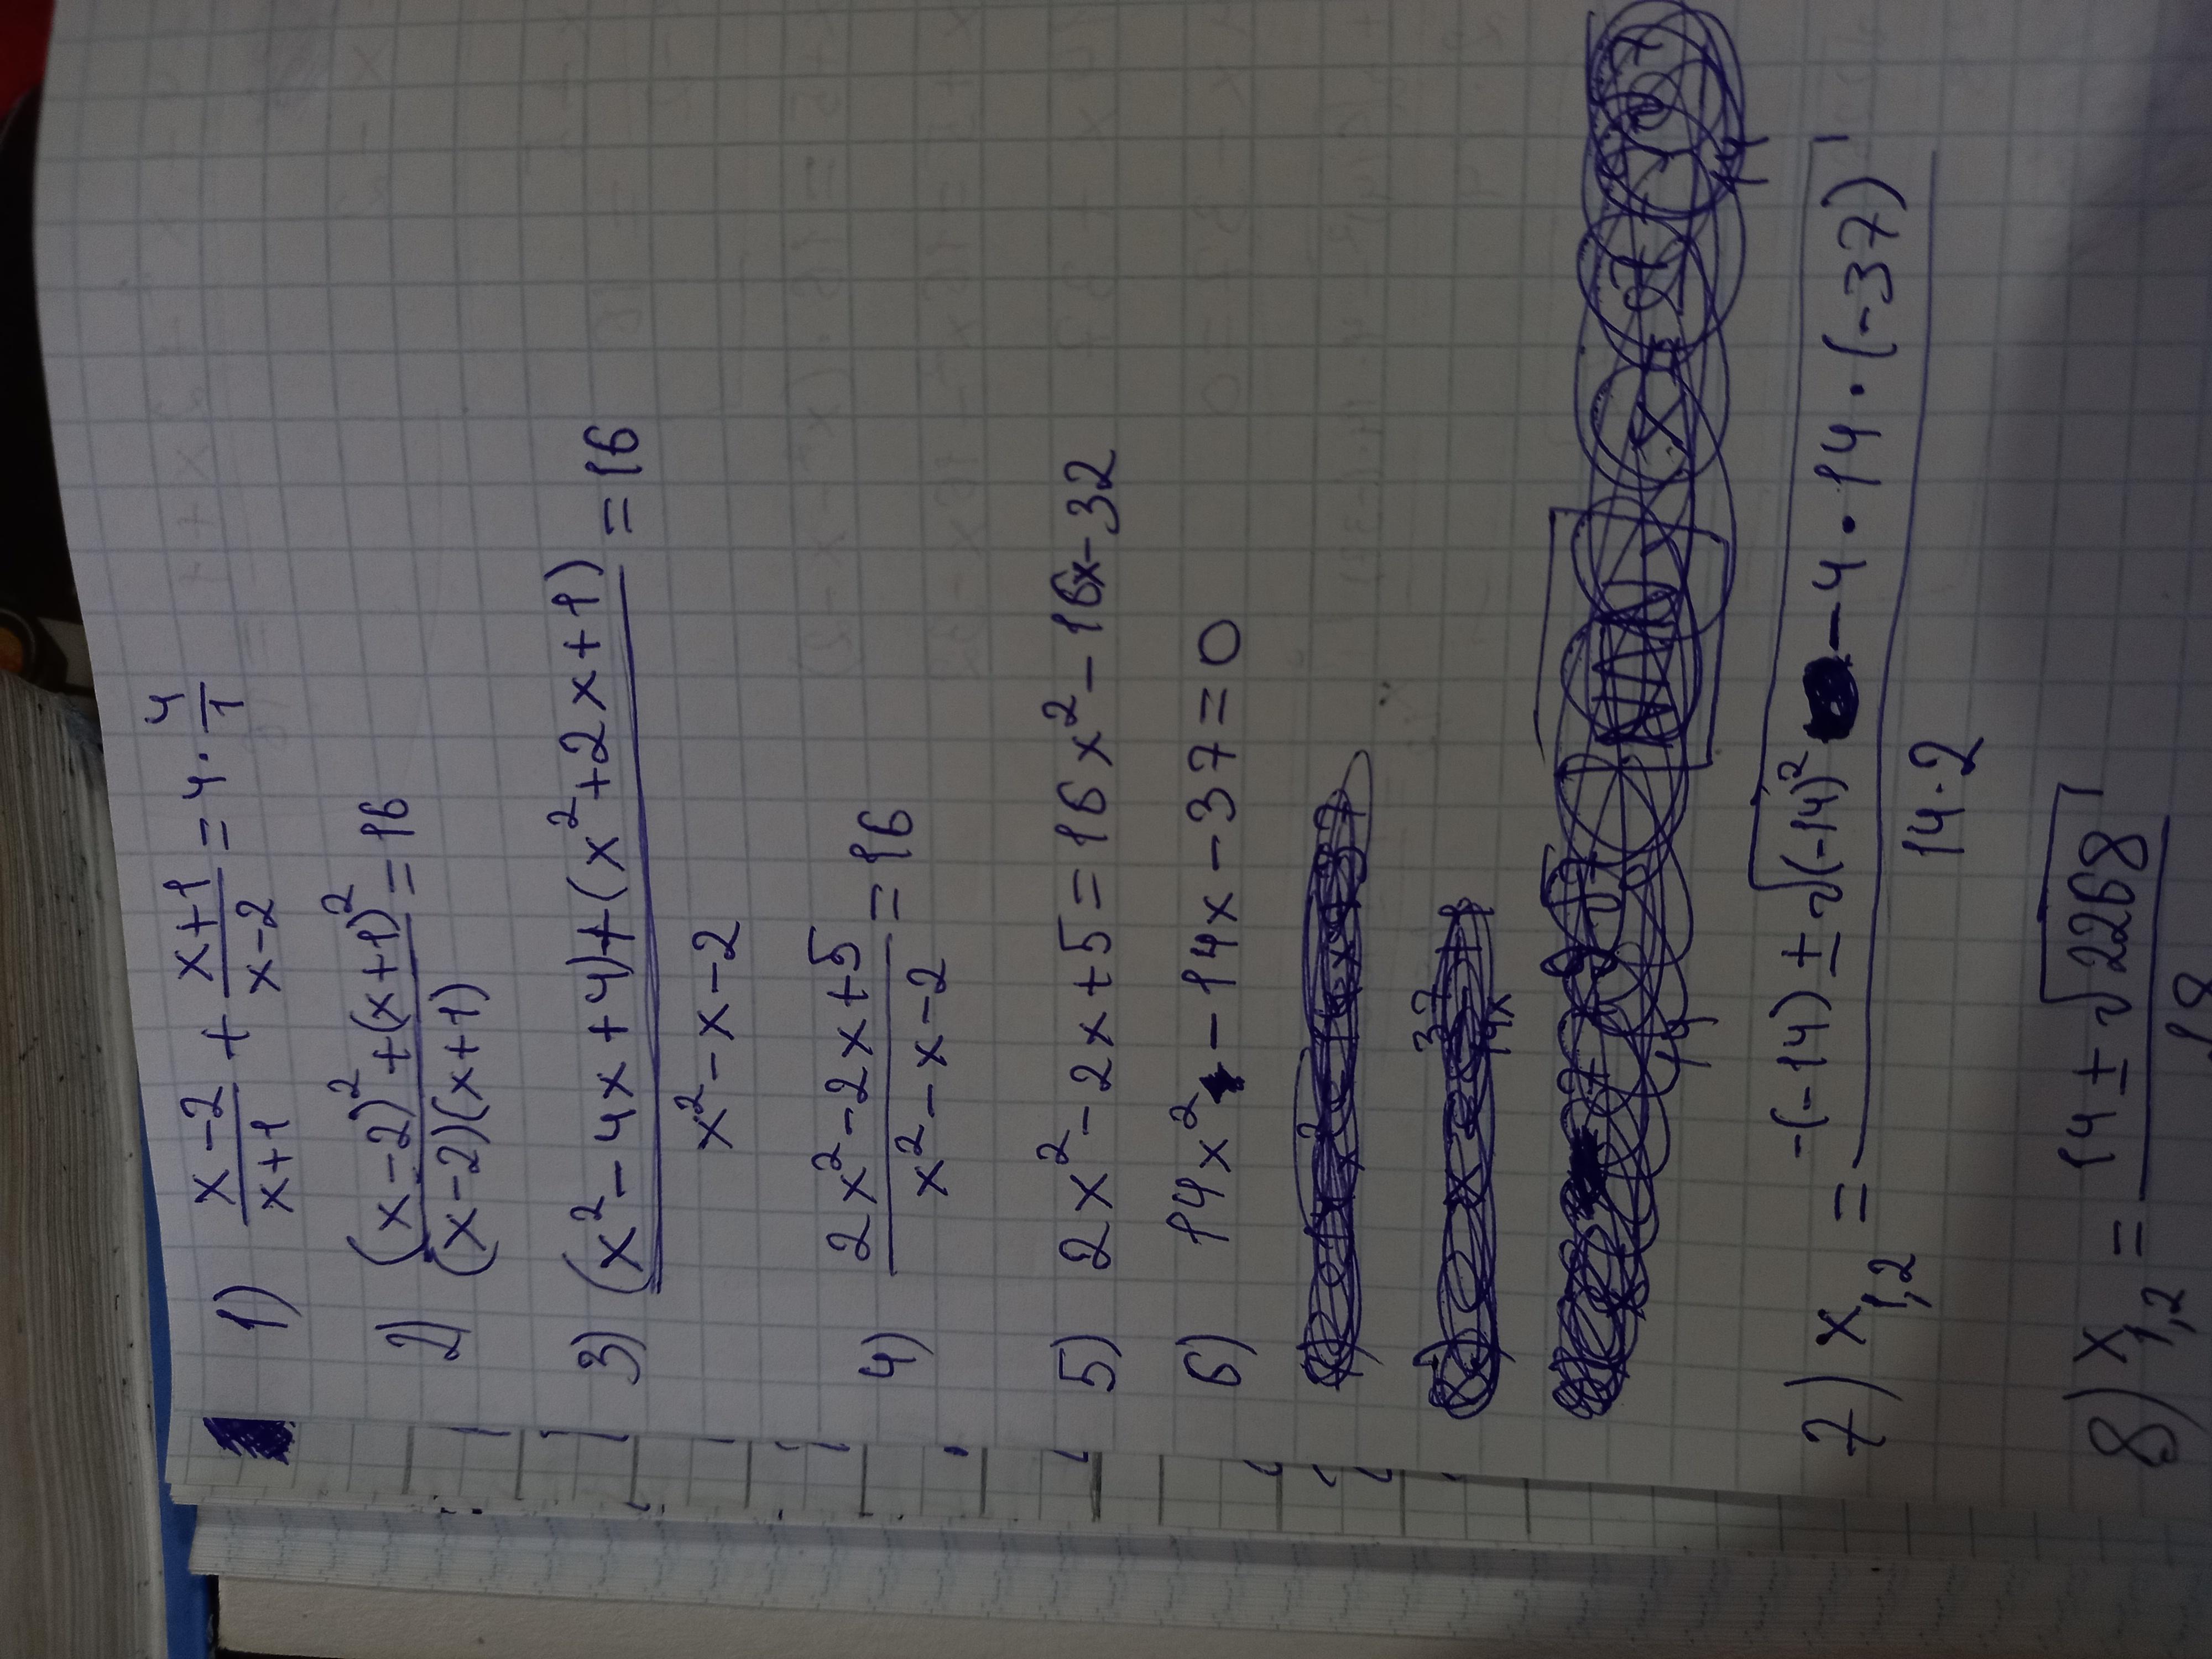 1) x-2/x+1 + x+1/x-2 = 4 · 4/1
2) (x-2)²+(x+1)²/(x-2)(x+1) = 16
3) (x²-4x+4)+(x²+2x+1)/x²-x-2 = 16
4) 2x²-2x+5/x²-x-2 = 16
5) 2x²-2x+5=16x²-16x-32
6) 14x²-14x-37=0
7) x₁,₂ = -(-14)±√(-14)²-4·14·(-37)/14·2
8) x₁,₂ = 14±√2268